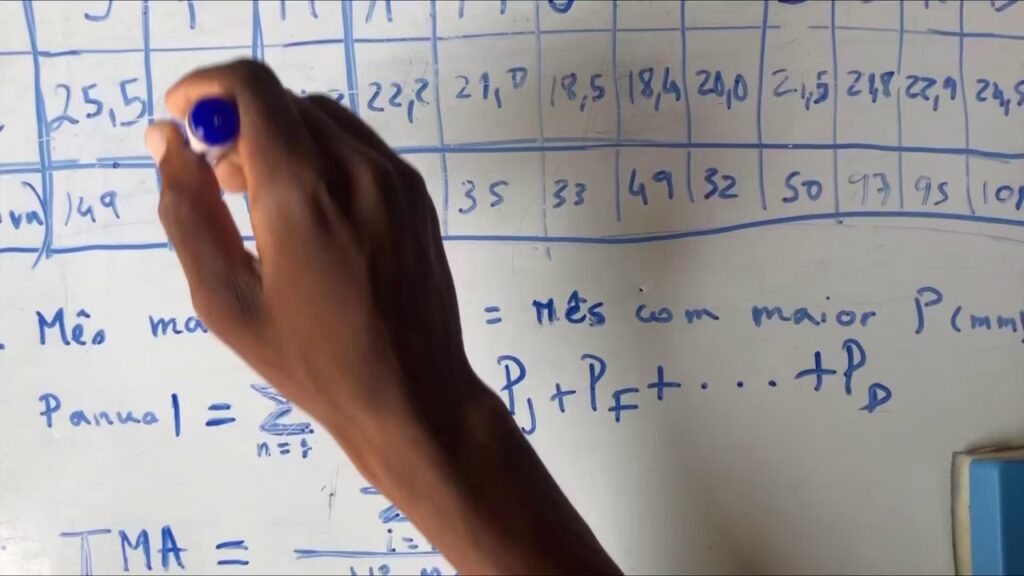 25,5 22,2 21,0 18,5 18,4 20,0 21,5 21,8 22,9
149 35 33 49 32 50 97 95
Mês = mês com maior P(mm)
Panual = ∑ n=1 PJ + PF + .... + PD
TMA = ∑ i=